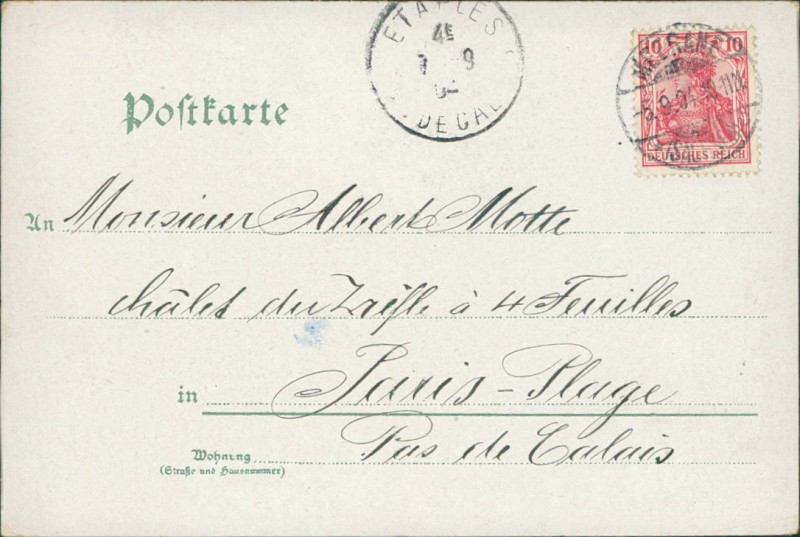 Postkarte
ETAPLES
4E
7 9
DE CAL
10 10
9.04. 11-12
DEUTSCHES REICH
An Monsieur Albert Motte
châlet du Trèfle à 4 Feuilles
in Paris-Plage
Wohnung Pas de Calais
(Straße und Hausnummer)